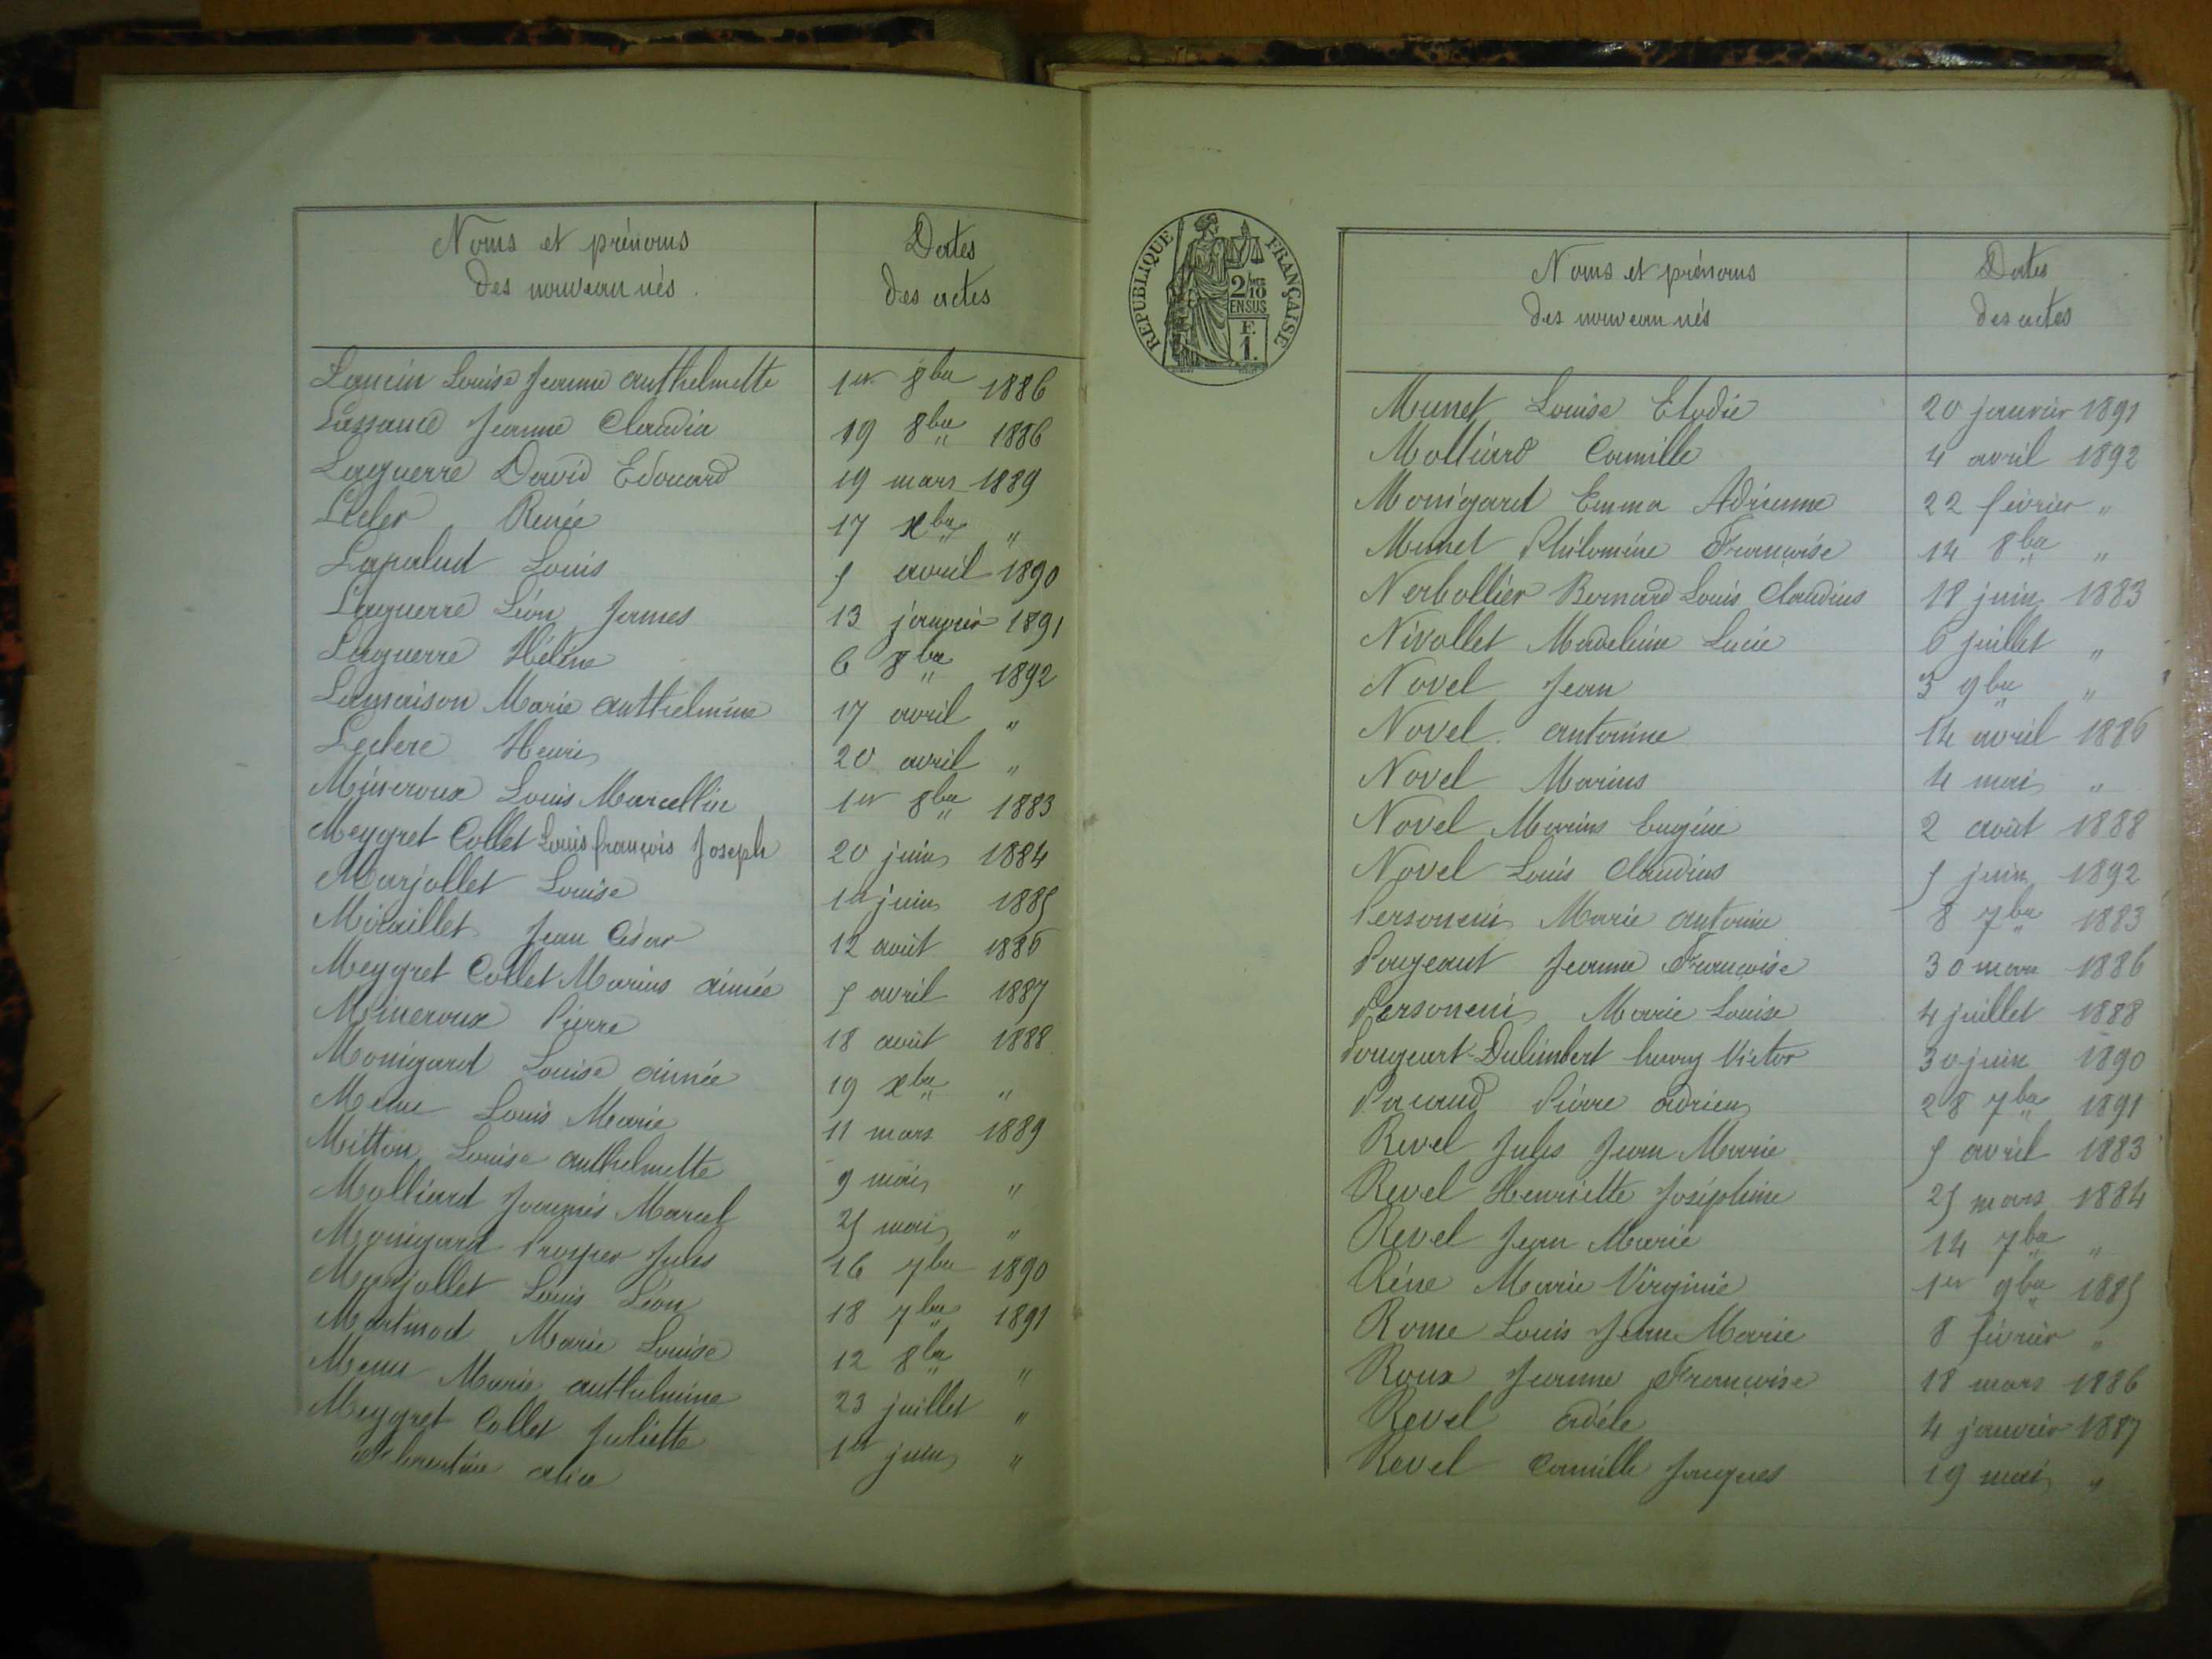 Noms et prénoms
des nouveau nés.
Dates
des actes
Lancin Louise Jeanne anthelmette 1er 8bre 1886
Lassance Jeanne Claudia 19 8bre 1886
Laguerre David Edouard 19 mars 1889
Lecler Renée 17 xbre "
Lapalud Louis 5 avril 1890
Laguerre Léon James 13 janvier 1891
Laguerre Hélène 6 8bre 1892
Lamaison Marie anthelmine 17 avril "
Leclerc Henri 20 avril "
Mineroux Louis Marcellin 1er 8bre 1883
Meygret Collet Louis françois Joseph 20 juin 1884
Marjollet Louise 1er juin 1885
Miraillet Jean César 12 août 1886
Meygret Collet Marius aimée 5 avril 1887
Mineroux Pierre 18 août 1888
Monigard Louise aimée 19 xbre "
Menu Louis Marie 11 mars 1889
Mitton Louise anthelmette 9 mai "
Molliard Joannès Marcel 25 mai "
Monigard Prosper Jules 16 7bre 1890
Marjollet Louis Léon 18 7bre 1891
Martinod Marie Louise 12 8bre "
Menu Marie anthelmine 23 juillet "
Meygret Collet Juliette 1er juin "
Florentine alice
REPUBLIQUE FRANÇAISE
2/10 MES
EN SUS
F.
1.
Noms et prénoms
des nouveau nés
Dates
des actes
Munet Louise Elodie 20 janvier 1891
Molliard Camille 4 avril 1892
Monigard Emma Adrienne 22 février "
Munet Philomine Françoise 14 8bre "
Nerbollier Bernard Louis Claudius 18 juin 1883
Nivollet Madeleine Lucie 6 juillet "
Novel Jean 3 9bre "
Novel antonine 14 avril 1886
Novel Marius 4 mai "
Novel Marius Eugène 2 août 1888
Novel Louis Claudius 5 juin 1892
Personeni Marie antonie 8 7bre 1883
Pougeaut Jeanne Françoise 30 mars 1886
Personeni Marie Louise 4 juillet 1888
Pougeart-Dulimbert henry Victor 30 juin 1890
Pacaud Pierre adrien 28 7bre 1891
Revel Jules Jean Marie 5 avril 1883
Revel Henriette Joséphine 25 mars 1884
Revel Jean Marie 14 7bre "
Réne Marie Virginie 1er 9bre 1885
Rome Louis Jean Marie 8 février "
Roux Jeanne Françoise 18 mars 1886
Revel adèle 4 janvier 1887
Revel Camille Jacques 19 mai "